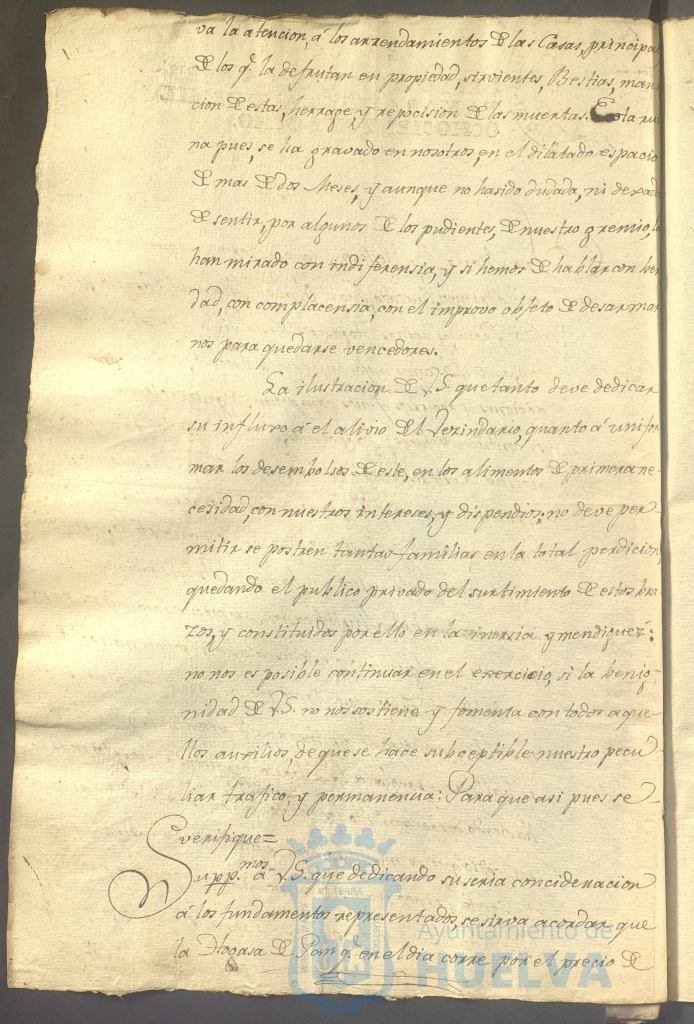 va la atencion, á los arrendamientos de las Casas, principa
de los q.e la defrutan en propiedad, sirvientes, Bestias, man
cion de estas, herrage, y reposicion de las muertas. Esta rui
na pues, se ha gravado en nosotros, en el dilatado espacio
de mas de dos Meses, y aunque no ha sido dudada, ni dexado
de sentir, por algunos de los pudientes, de nuestro gremio, lo
han mirado con indiferensia, y si hemos de hablar con ber
dad, con complacensia, con el improvo objeto de desarmar
nos para quedarse vencedores.
La ilustracion de V.S. que tanto deve dedicar
su influxo á el alivio del Vezindario, quanto á unifor
mar los desembolsos de este, en los alimentos de primera ne
cesidad, con nuestros intereses, y dispendios; no deve per
mitir se postren tantas familias en la total perdicion,
quedando el publico privado del surtimiento de estos bra
zos, y constituidos por ello en la inersia y mendiguez:
no nos es posible continuar en el exercicio, si la benig
nidad de V.S. no nos sostiene y fomenta con todos aque
llos auxilios, de que se hace subceptible nuestro pecu
liar trafico, y permanencia: Para que asi pues se
verifique=
Supp.mos á V.S. que dedicando su seria concideracion
á los fundamentos representados, se sirva acordar que
la Hogasa de Pan q.e en el dia corre por el precio de
Ayuntamiento de
HUELVA